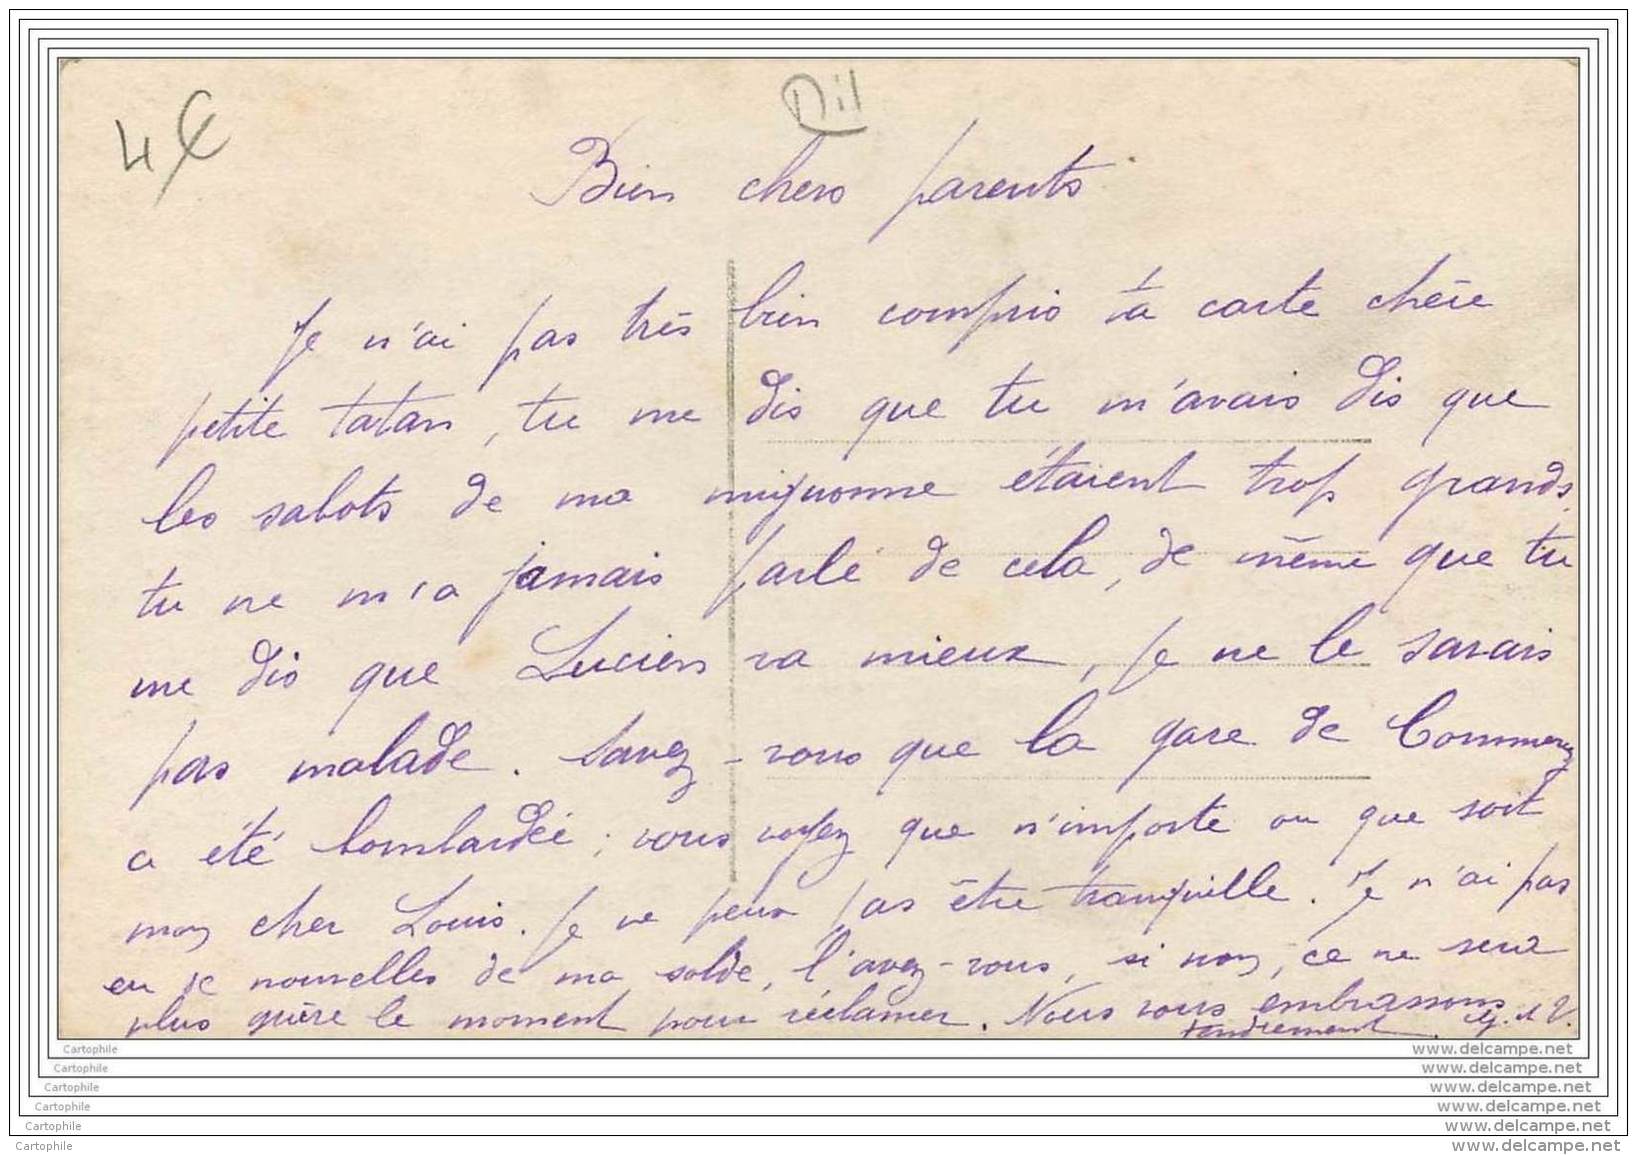 4 €
Bien chers parents
Je n'ai pas très bien compris ta carte chère
petite tatan, tu me dis que tu m'avais dis que
les sabots de ma mignonne étaient trop grands,
tu ne m'a jamais parlé de cela, de même que tu
me dis que Lucien va mieux, je ne le savais
pas malade. Savez-vous que la gare de Commercy
a été bombardée ; vous voyez que n'importe ou que soit
mon cher Louis. je ne peux pas être tranquille. Je n'ai pas
eu de nouvelles de ma solde, l'avez-vous, si non, ce ne sera
plus guère le moment pour réclamer. Nous vous embrassons
tendrement.
Cartophile
www.delcampe.net
Cartophile
www.delcampe.net
Cartophile
www.delcampe.net
Cartophile
www.delcampe.net
Cartophile
www.delcampe.net
Cartophile
www.delcampe.net